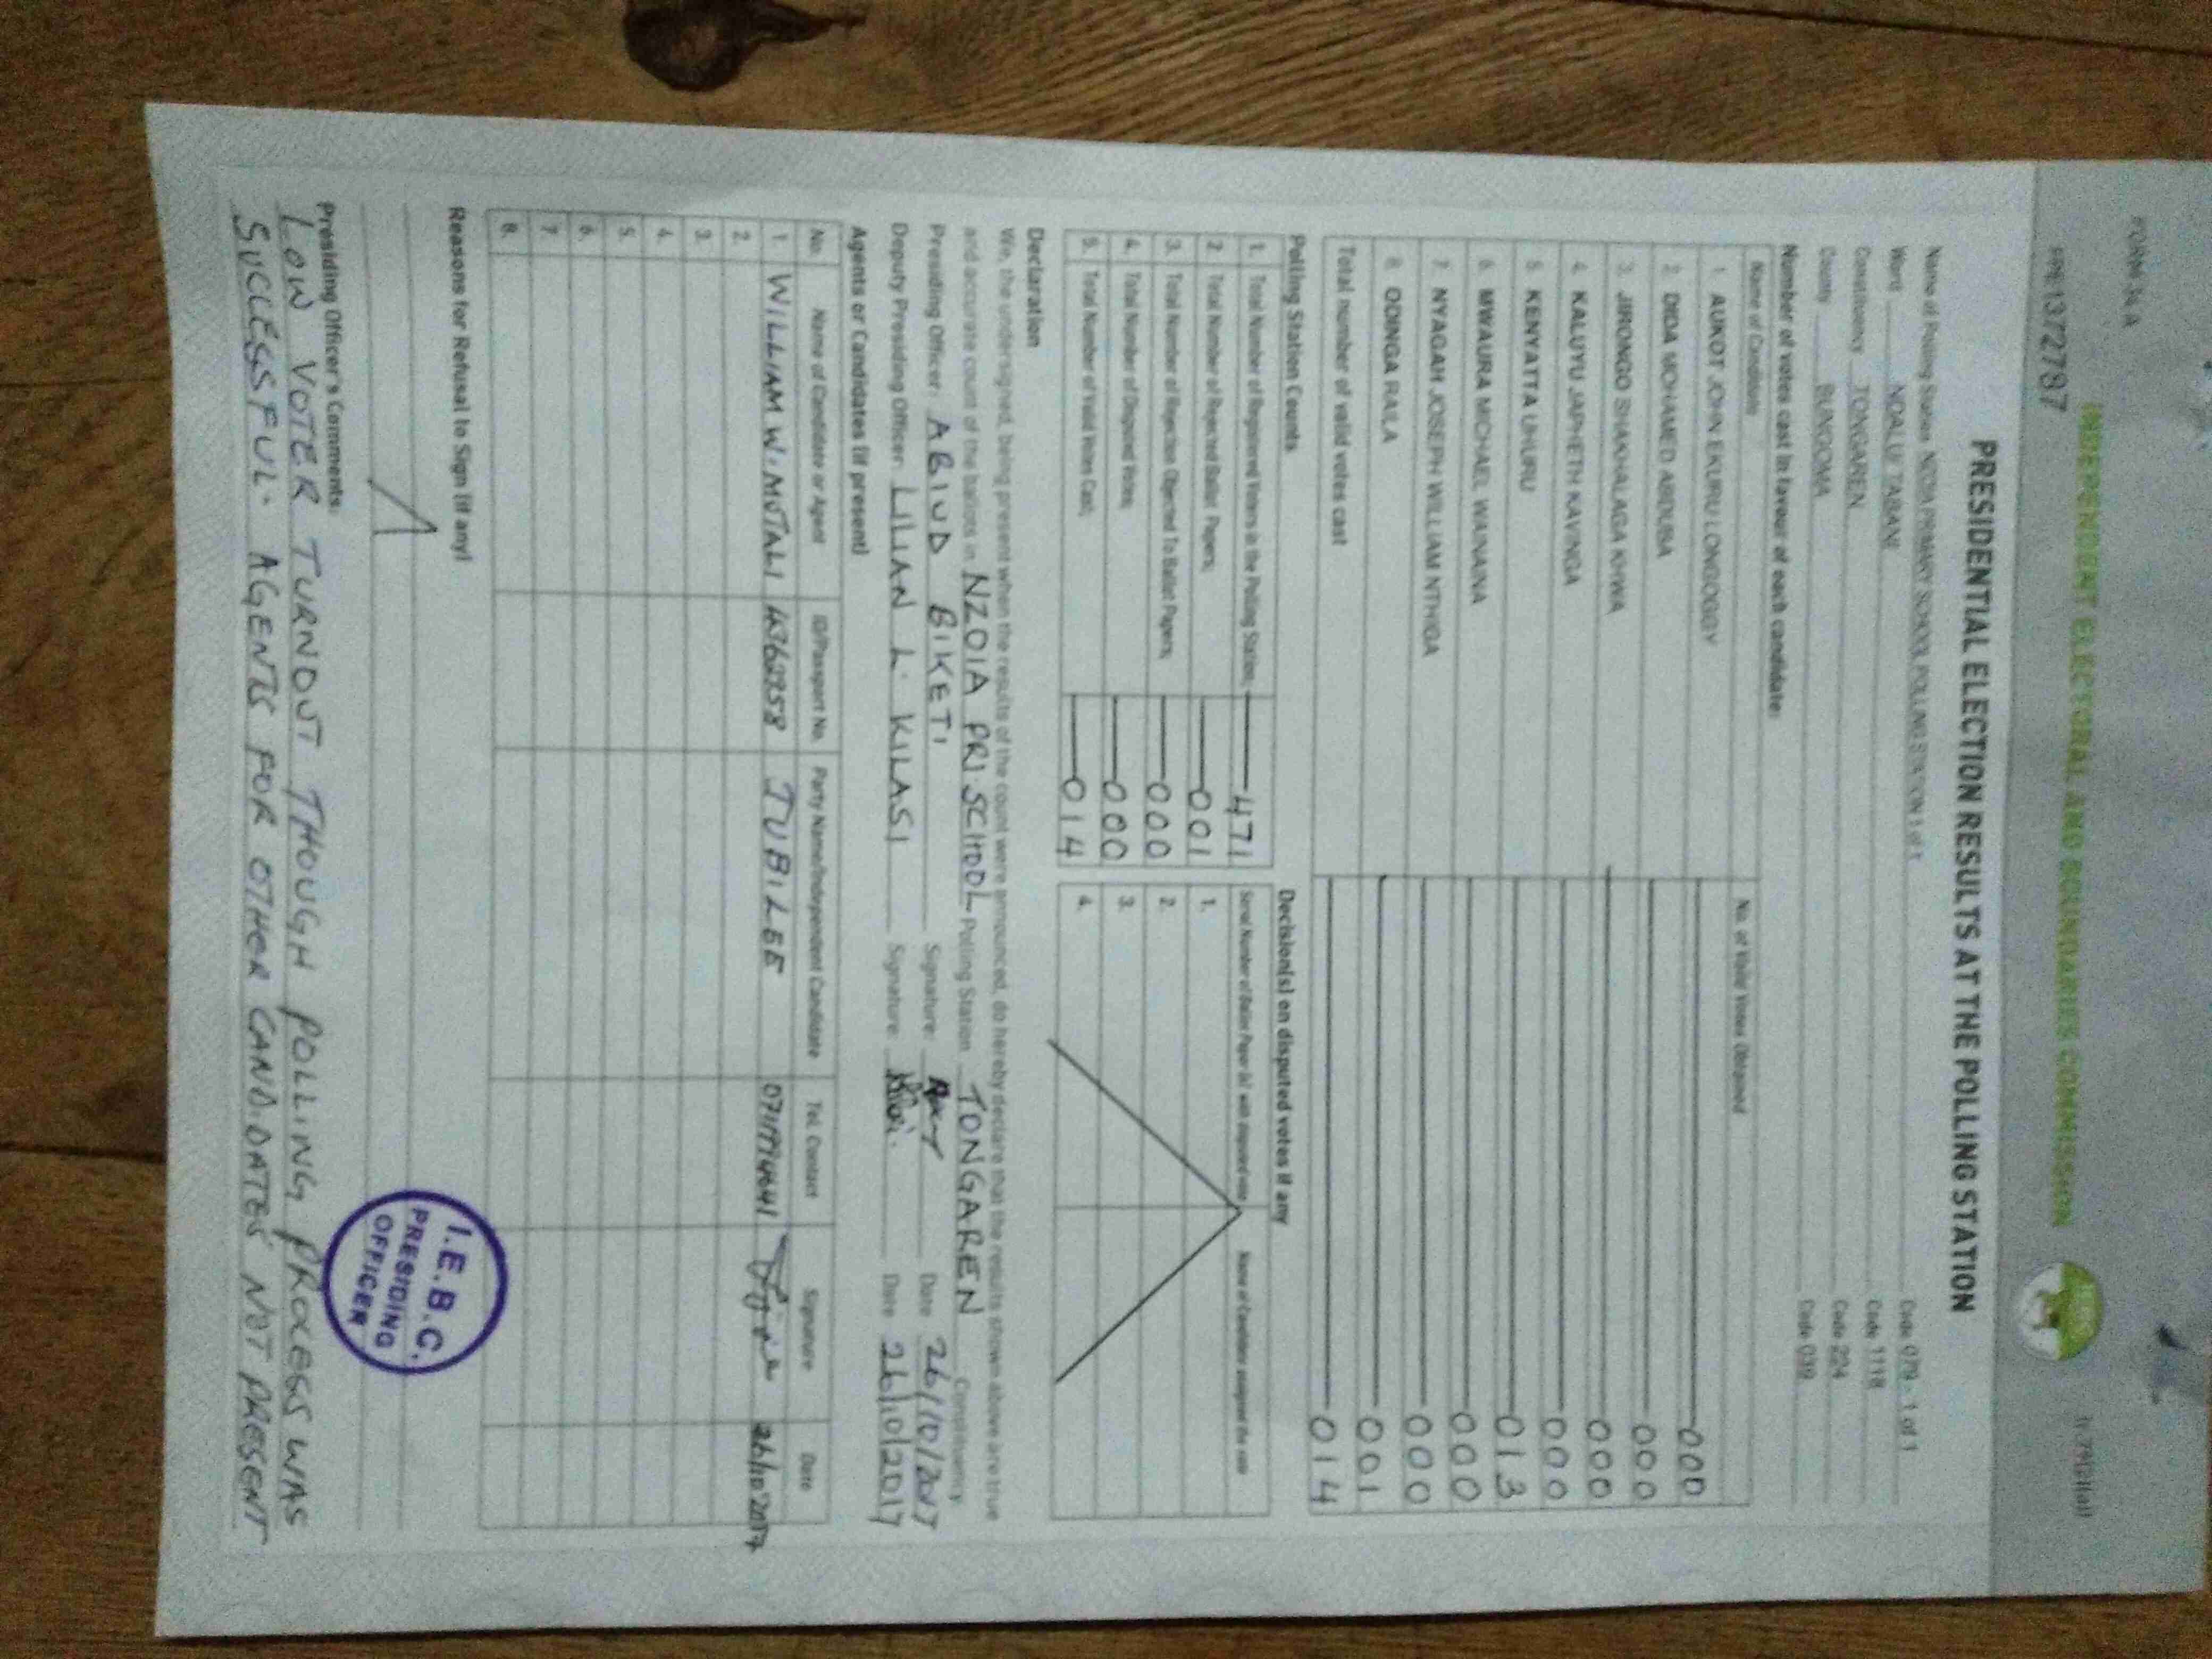 FORM 34 A
INDEPENDENT ELECTORAL AND BOUNDARIES COMMISSION
PRE1372787
PRESIDENTIAL ELECTION RESULTS AT THE POLLING STATION
Name of Polling Station NZOIA PRIMARY SCHOOL POLLING STATION 1 of 1 Code 079 - 1 of 1
Ward NDALU/ TABANI Code 1118
Constituency TONGAREN Code 224
County BUNGOMA Code 039
Number of votes cast in favour of each candidate:
Name of Candidate No. of Valid Votes Obtained
1. AUKOT JOHN EKURU LONGOGGY 000
2. DIDA MOHAMED ABDUBA 000
3. JIRONGO SHAKHALAGA KHWA 000
4. KALUYU JAPHETH KAVINGA 000
5. KENYATTA UHURU 013
6. MWAURA MICHAEL WAINAINA 000
7. NYAGAH JOSEPH WILLIAM NTHIGA 000
8. ODINGA RAILA 001
Total number of valid votes cast 014
Polling Station Counts
1. Total Number of Registered Voters in the Polling Station; 471
2. Total Number of Rejected Ballot Papers; 001
3. Total Number of Rejection Objected To Ballot Papers; 000
4. Total Number of Disputed Votes; 000
5. Total Number of Valid Votes Cast; 014
Decision(s) on disputed votes if any
Serial Number of Ballot Paper (s) with disputed vote Name of Candidate assigned the vote
1.
2.
3.
4.
Declaration
We, the undersigned, being present when the results of the count were announced, do hereby declare that the results shown above are true
and accurate count of the ballots in NZOIA PRI. SCHOOL Polling Station TONGAREN Constituency
Presiding Officer: ABIUD BIKETI Signature: Date 26/10/2017
Deputy Presiding Officer: LILIAN L. KILASI Signature: Date 26/10/2017
Agents or Candidates (if present)
No. Name of Candidate or Agent ID/Passport No. Party Name/Independent Candidate Tel. Contact Signature Date
1. WILLIAM W. MUTALI JUBILEE 26/10/2017
2.
3.
4.
5.
6.
7.
8.
Reasons for Refusal to Sign (if any)
Presiding Officer's Comments:
LOW VOTER TURNOUT THOUGH POLLING PROCESS WAS
SUCCESSFUL. AGENTS FOR OTHER CANDIDATES NOT PRESENT
I.E.B.C.
PRESIDING
OFFICER